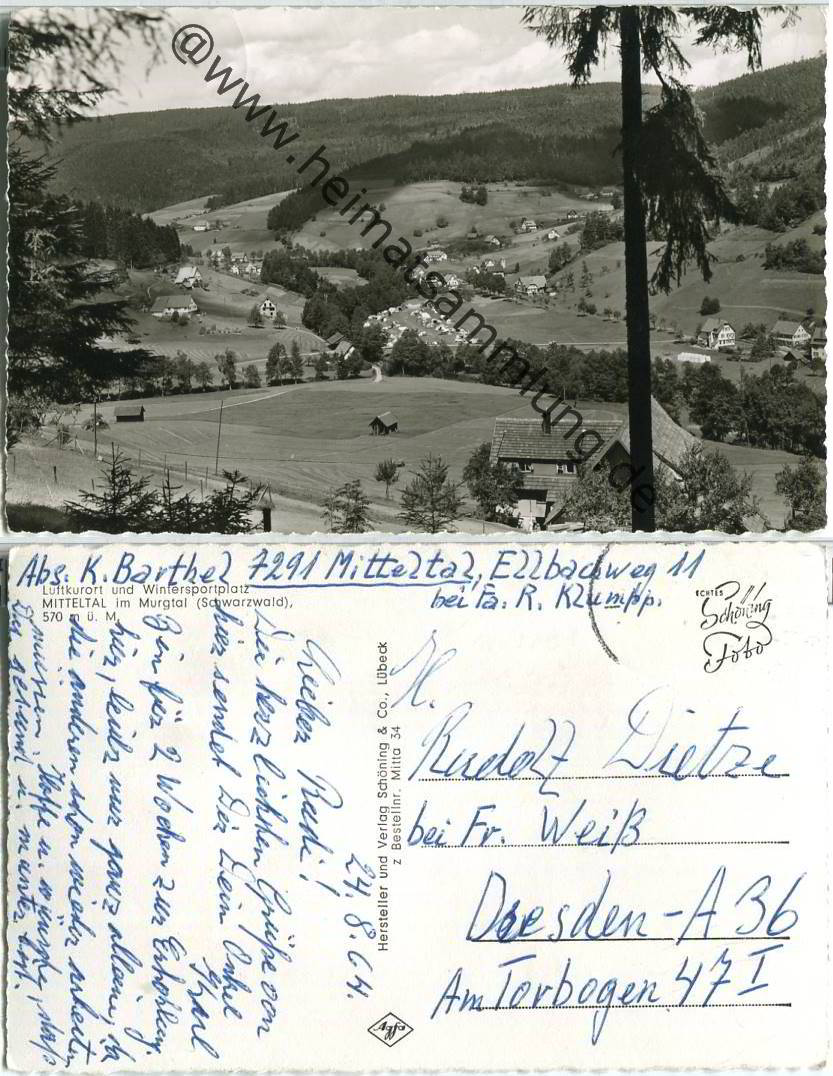 @www.heimatsammlung.de
Abs: K. Barthel 7291 Mitteltal, Ellbachweg 11
bei Fa. R. Klumpp.
Luftkurort und Wintersportplatz
MITTELTAL im Murgtal (Schwarzwald),
570 m ü. M.
ECHTES
Schöning
Foto
24. 8. 64.
Lieber Rudi!
Die herzlichsten Grüße von
hier sendet Dir Dein Onkel
Karl
Bin für 2 Wochen zur Erholung
hier, leider nur ganz allein, da
die anderen schon wieder arbeiten
müssen. Hoffe u. wünsche, daß
Du gesund u. munter bist.
Hersteller und Verlag Schöning & Co., Lübeck
z Bestellnr. Mitta 34
Agfa
H.
Rudolf Dietze
bei Fr. Weiß
Dresden-A 36
Am Torbogen 47 I